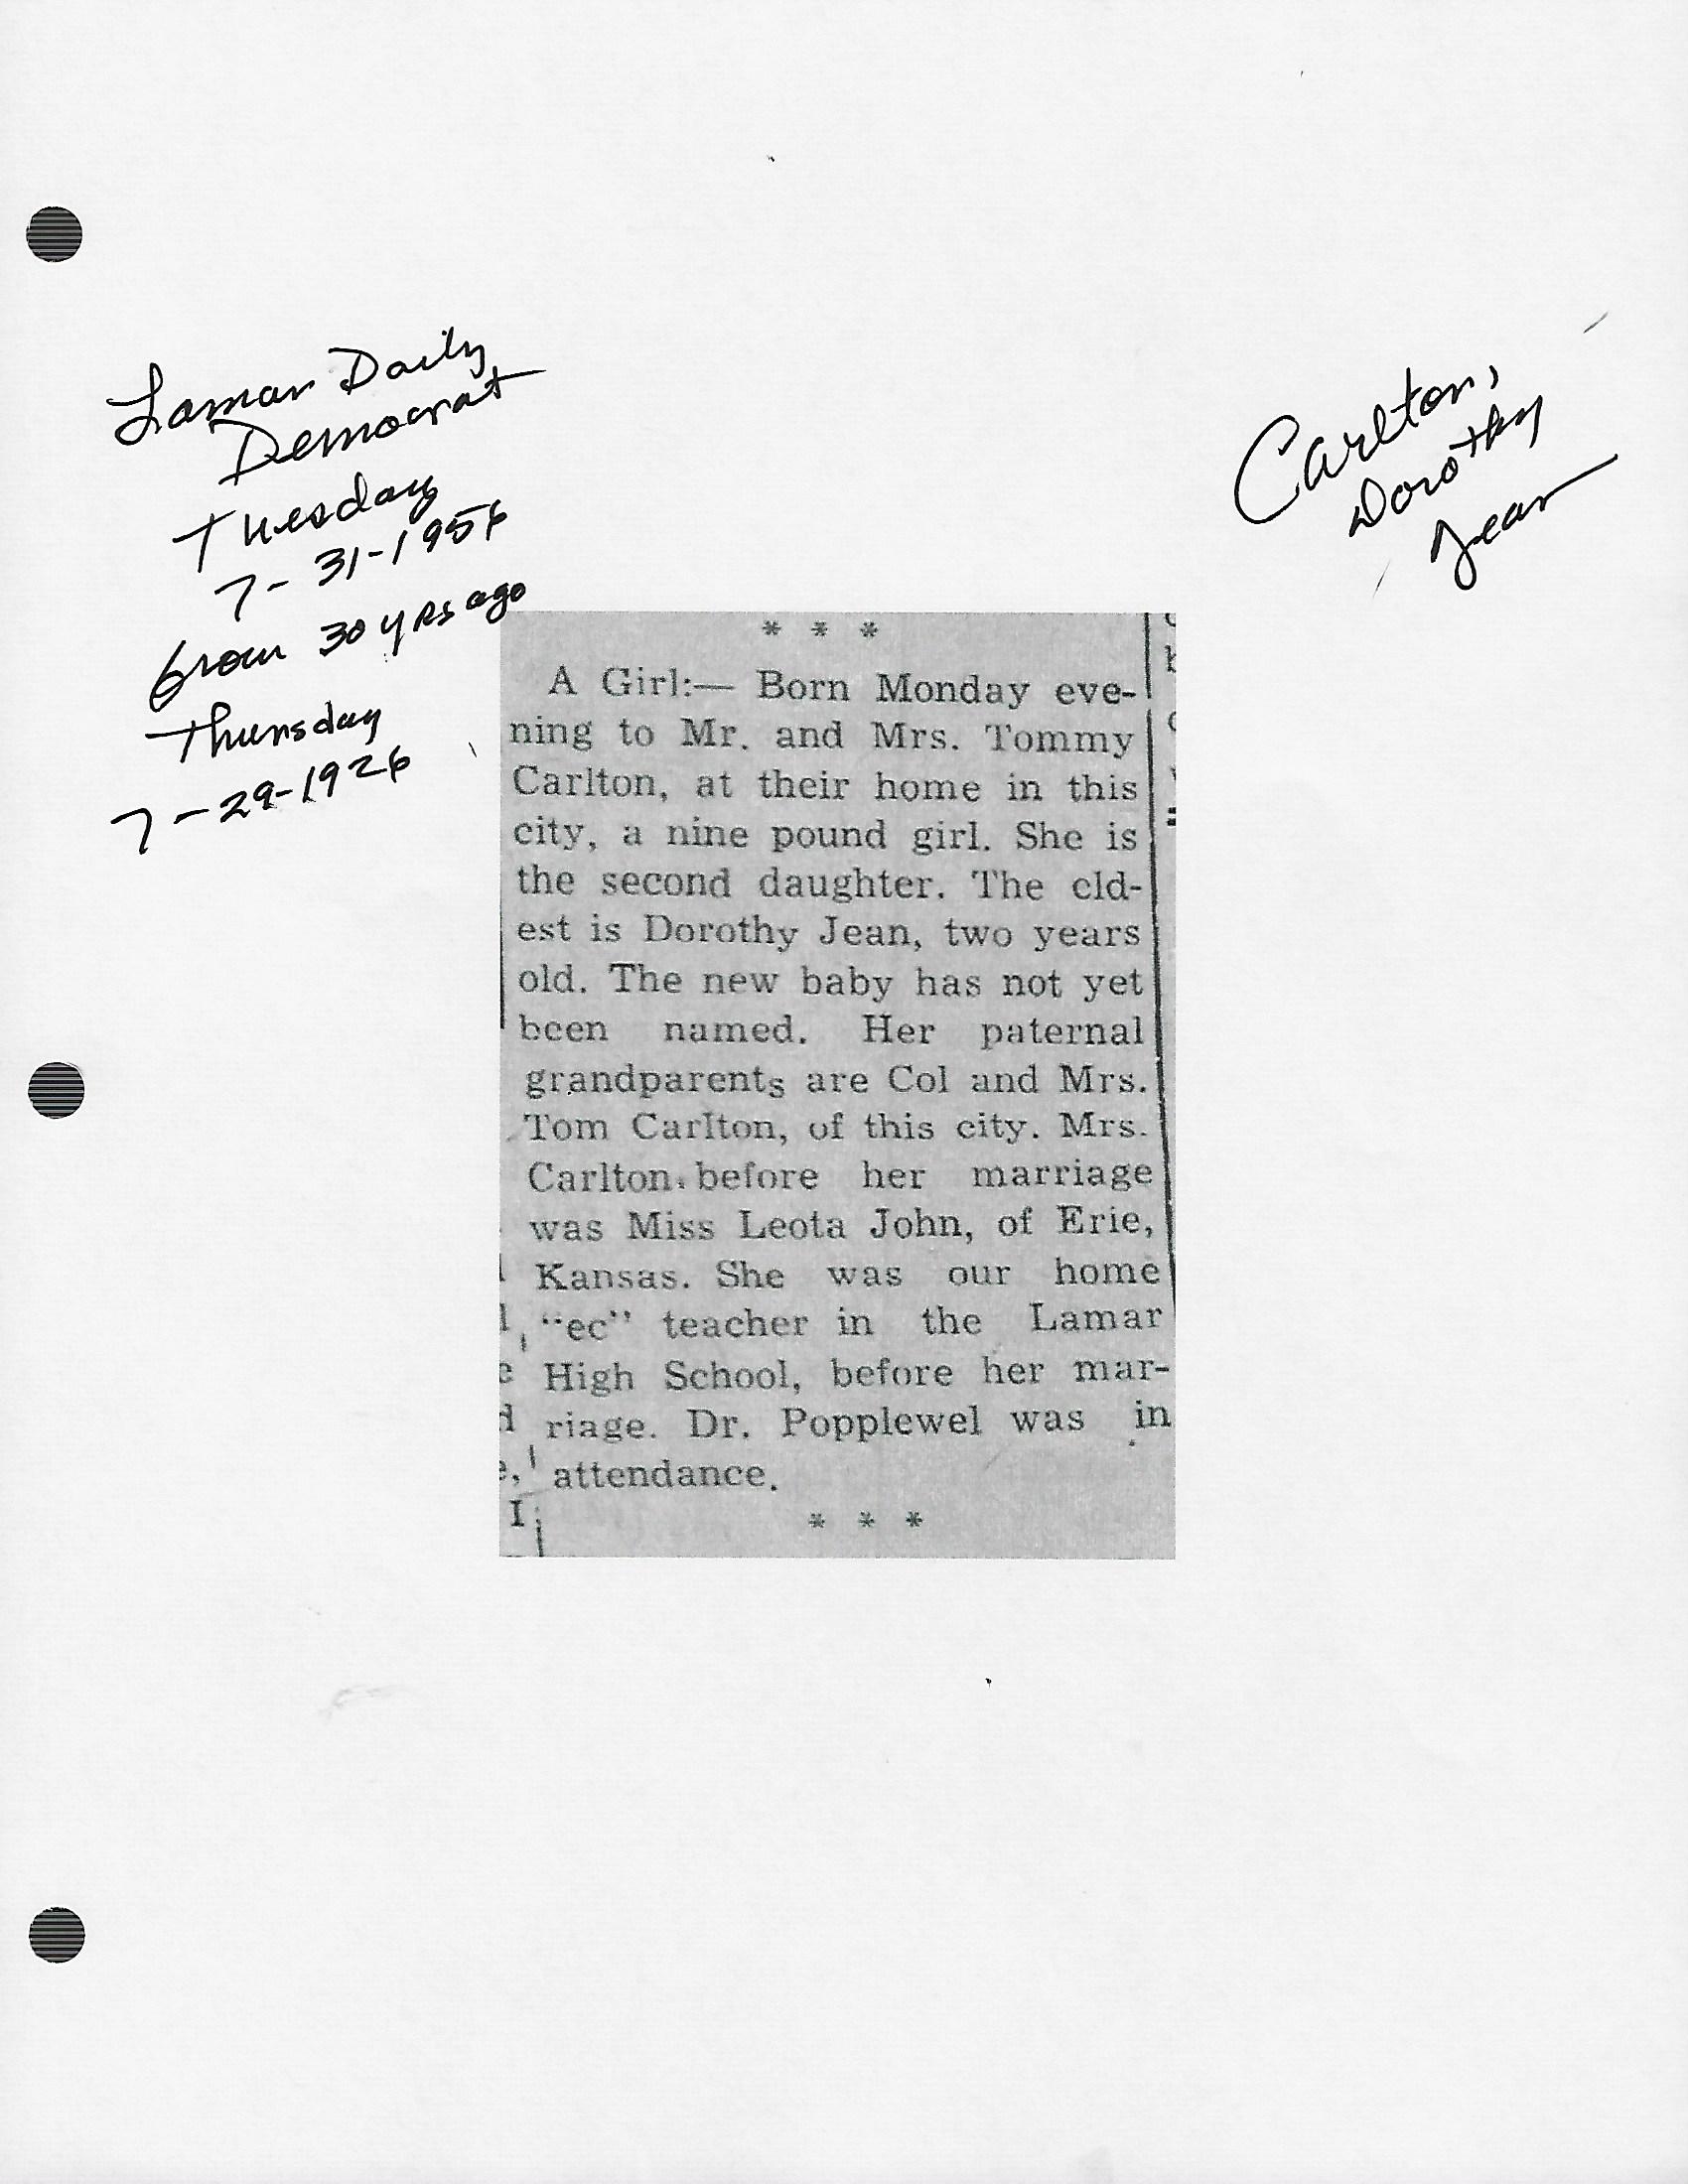 Lamar Daily
Democrat
Tuesday
7-31-1956
from 30 yrs ago
Thursday
7-29-1926
Carlton,
Dorothy
Jean
* * *
A Girl:— Born Monday eve-
ning to Mr. and Mrs. Tommy
Carlton, at their home in this
city, a nine pound girl. She is
the second daughter. The eld-
est is Dorothy Jean, two years
old. The new baby has not yet
been named. Her paternal
grandparents are Col and Mrs.
Tom Carlton, of this city. Mrs.
Carlton, before her marriage
was Miss Leota John, of Erie,
Kansas. She was our home
"ec" teacher in the Lamar
High School, before her mar-
riage. Dr. Popplewel was in
attendance.
* * *